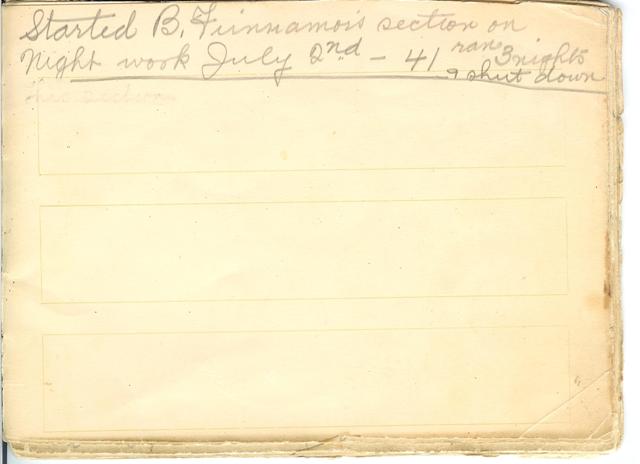 Started B. Finnamois section on
Night work July 2nd - 41 ran 3 nights
& shut down